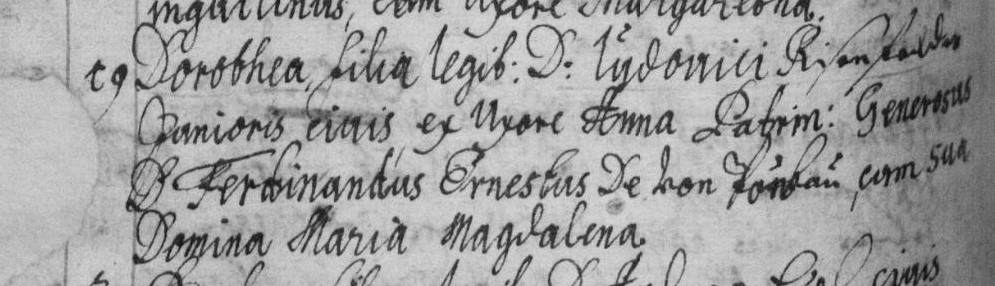 inquilinus, cum Uxore Margaretha.
19 Dorothea, filia legit: D: Lydovici Risenfelder
Junioris civis, ex Uxore Anna Patrin: Generosus
D Ferdinandus Ernestus De von cum sua
Domina Maria Magdalena.
civis